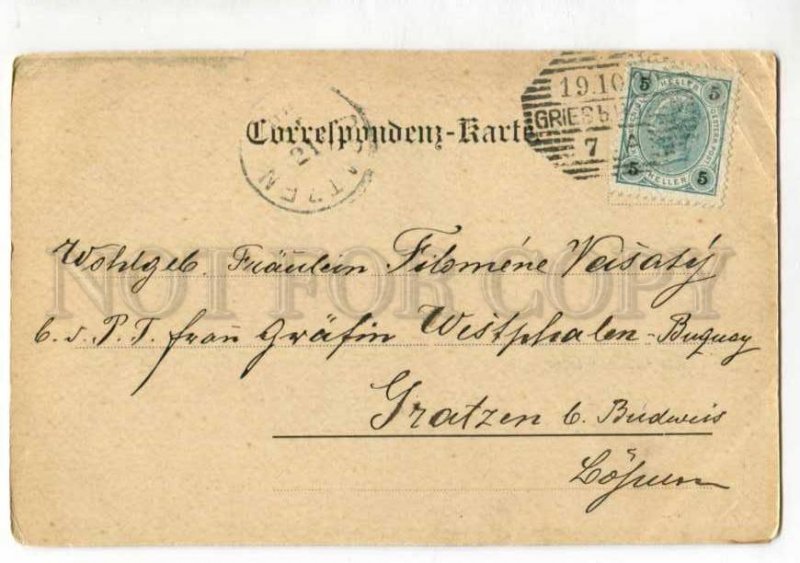 Correspondenz-Karte
19.10
GRIES b
7
5 HELLER 5
5 HELLER 5
21
TZEN
Wohlgeb. Fräulein Filoméne Vašatý
b. d. P. T. frau Gräfin Westphalen-Buquoy
Gratzen b. Budweis
Böhmen
NOT FOR COPY